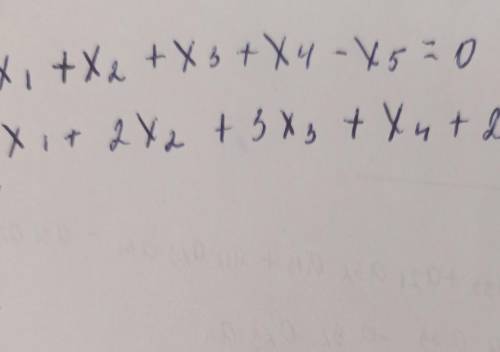 x₁ + x₂ + x₃ + x₄ - x₅ = 0
x₁ + 2x₂ + 3x₃ + x₄ + 2